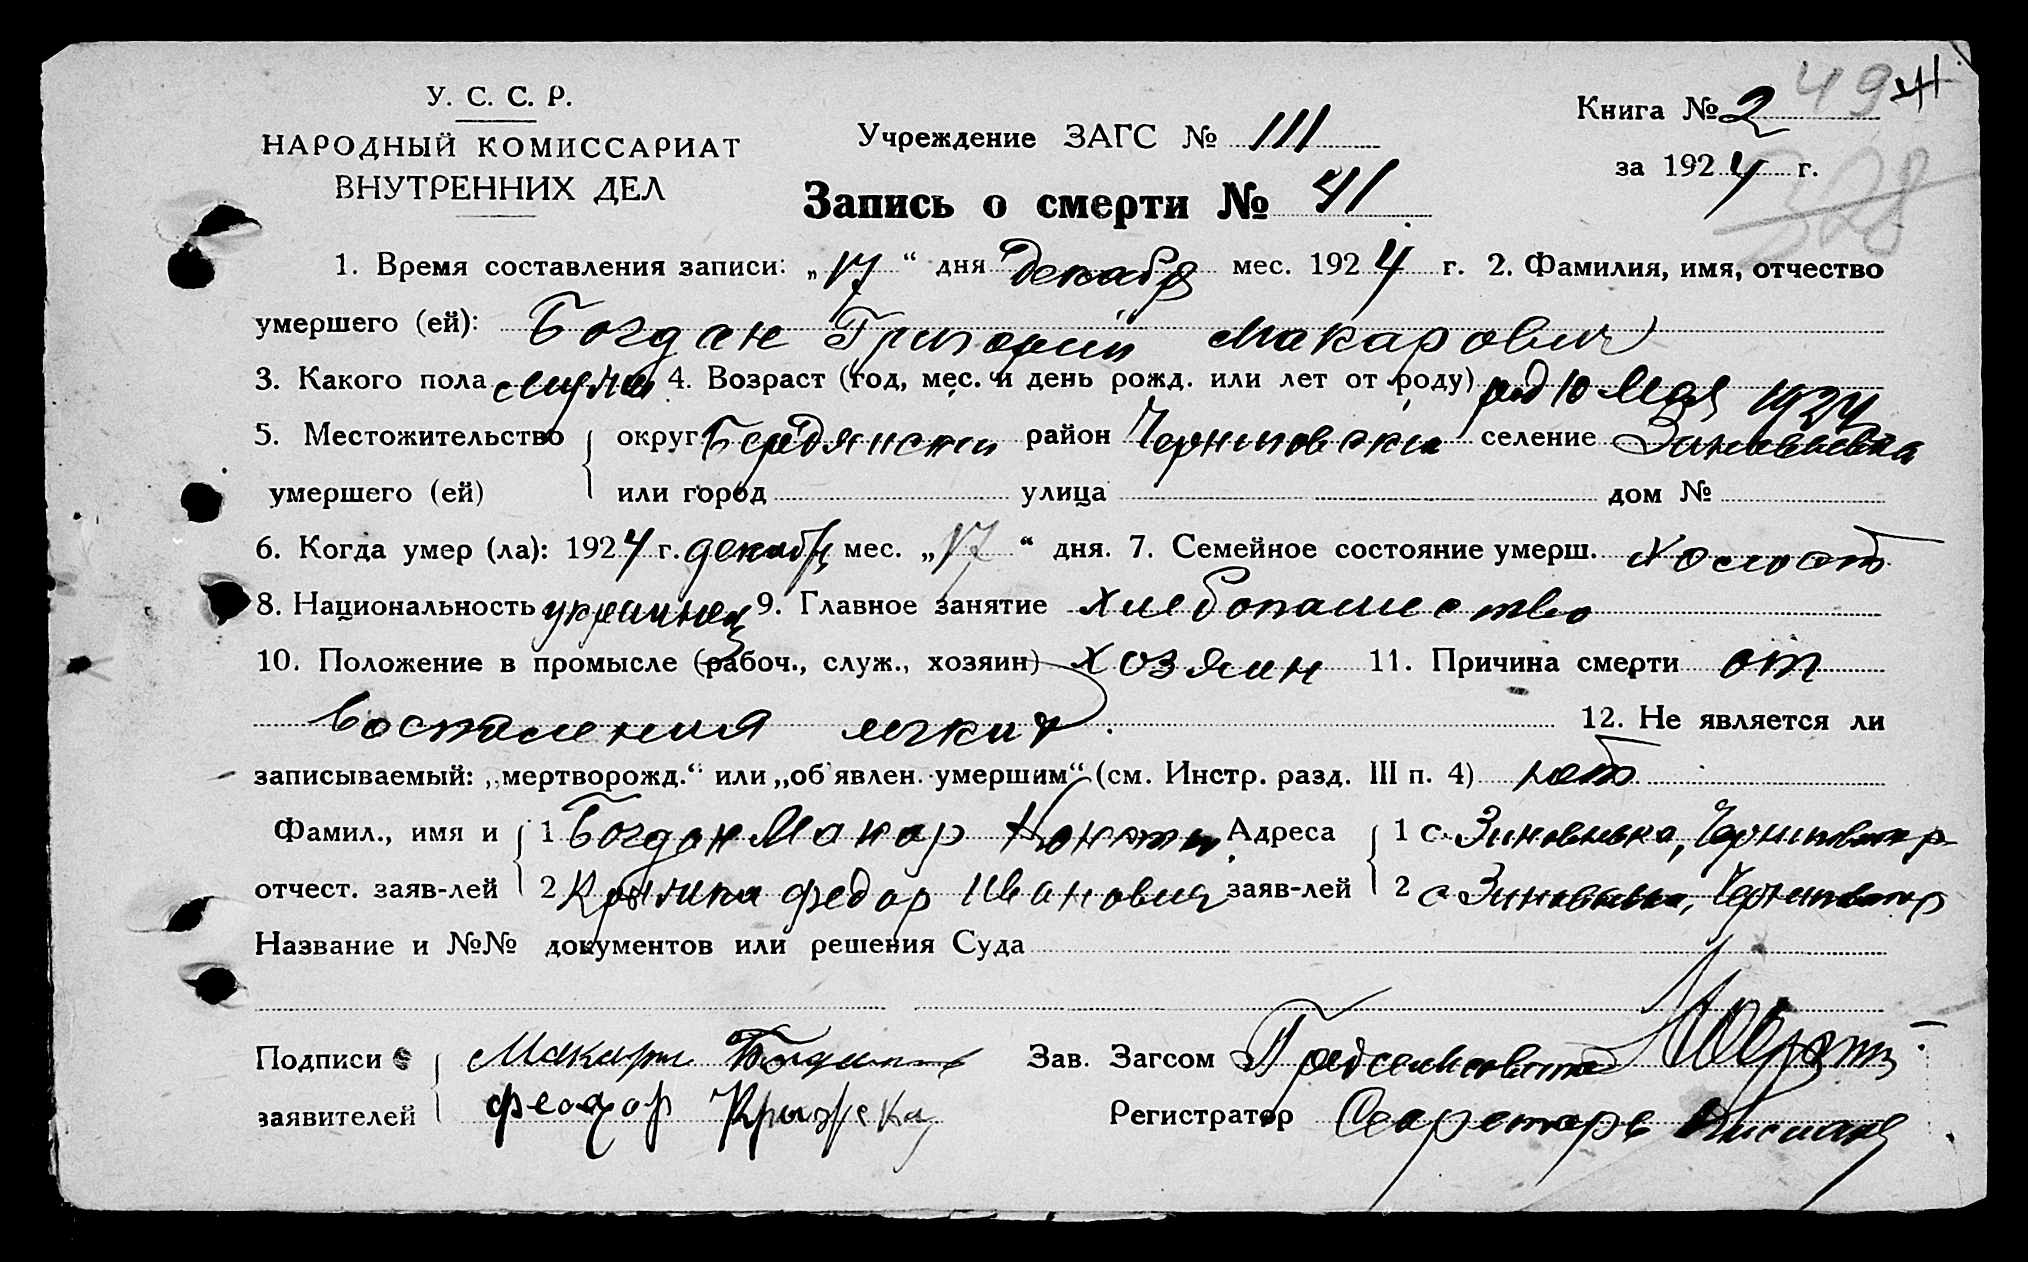 У. С. С. Р.
НАРОДНЫЙ КОМИССАРИАТ
ВНУТРЕННИХ ДЕЛ
Учреждение ЗАГС № 111
Запись о смерти № 41
Книга № 2 49
за 1924 г.
328
1. Время составления записи: „17“ дня декабря мес. 1924 г. 2. Фамилия, имя, отчество
умершего (ей): Богдан Григорий Макарович
3. Какого пола мужч 4. Возраст (год, мес. и день рожд. или лет от роду) род 10 мая 1924
5. Местожительство округ Бердянский район Черниговский селение Зиновьевка
умершего (ей) или город улица дом №
6. Когда умер (ла): 1924 г. декабря мес. „17“ дня. 7. Семейное состояние умерш. холост
8. Национальность украинец 9. Главное занятие хлебопашество
10. Положение в промысле (рабоч., служ., хозяин) хозяин 11. Причина смерти от
воспаления легких. 12. Не является ли
записываемый: „мертворожд.“ или „об'явлен. умершим“ (см. Инстр. разд. III п. 4) нет
Фамил., имя и 1 Богдан Макар Адреса 1 с. Зиновьевка,
отчест. заяв-лей 2 Федор Иванович заяв-лей 2 с Зиновьевка,
Название и №№ документов или решения Суда
Подписи Макаръ Богданъ Зав. Загсом Предсельсовета
заявителей феодор Крыжска Регистратор Секретарь